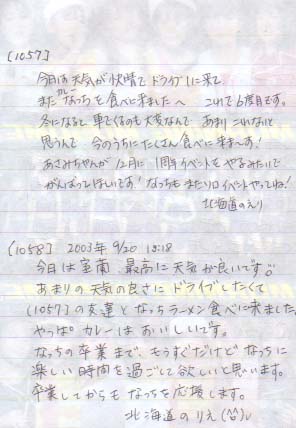 [1057]
今日は天気が快晴でドライブに来て
またなっちカレーを食べに来ました〜 これで6度目です。
冬になると車でくるのも大変なんであまりこれないと
思うんで今のうちにたくさん食べに来まーす!
あさみちゃんが12月に1周年イベントをやるみたいで
がんばってほしいです!なっちもまたソロイベントやってね!
北海道のえり
[1058] 2003年 9/20 13:18
今日は室蘭、最高に天気が良いです。
あまりの天気の良さにドライブしたくて
[1057]の友達となっちラーメン食べに来ました。
やっぱ。カレーはおいしいです。
なっちの卒業まで、もうすぐだけどなっちに
楽しい時間を過ごして欲しいと思います。
卒業してからもなっちを応援します。
北海道のりえ(^^)ル